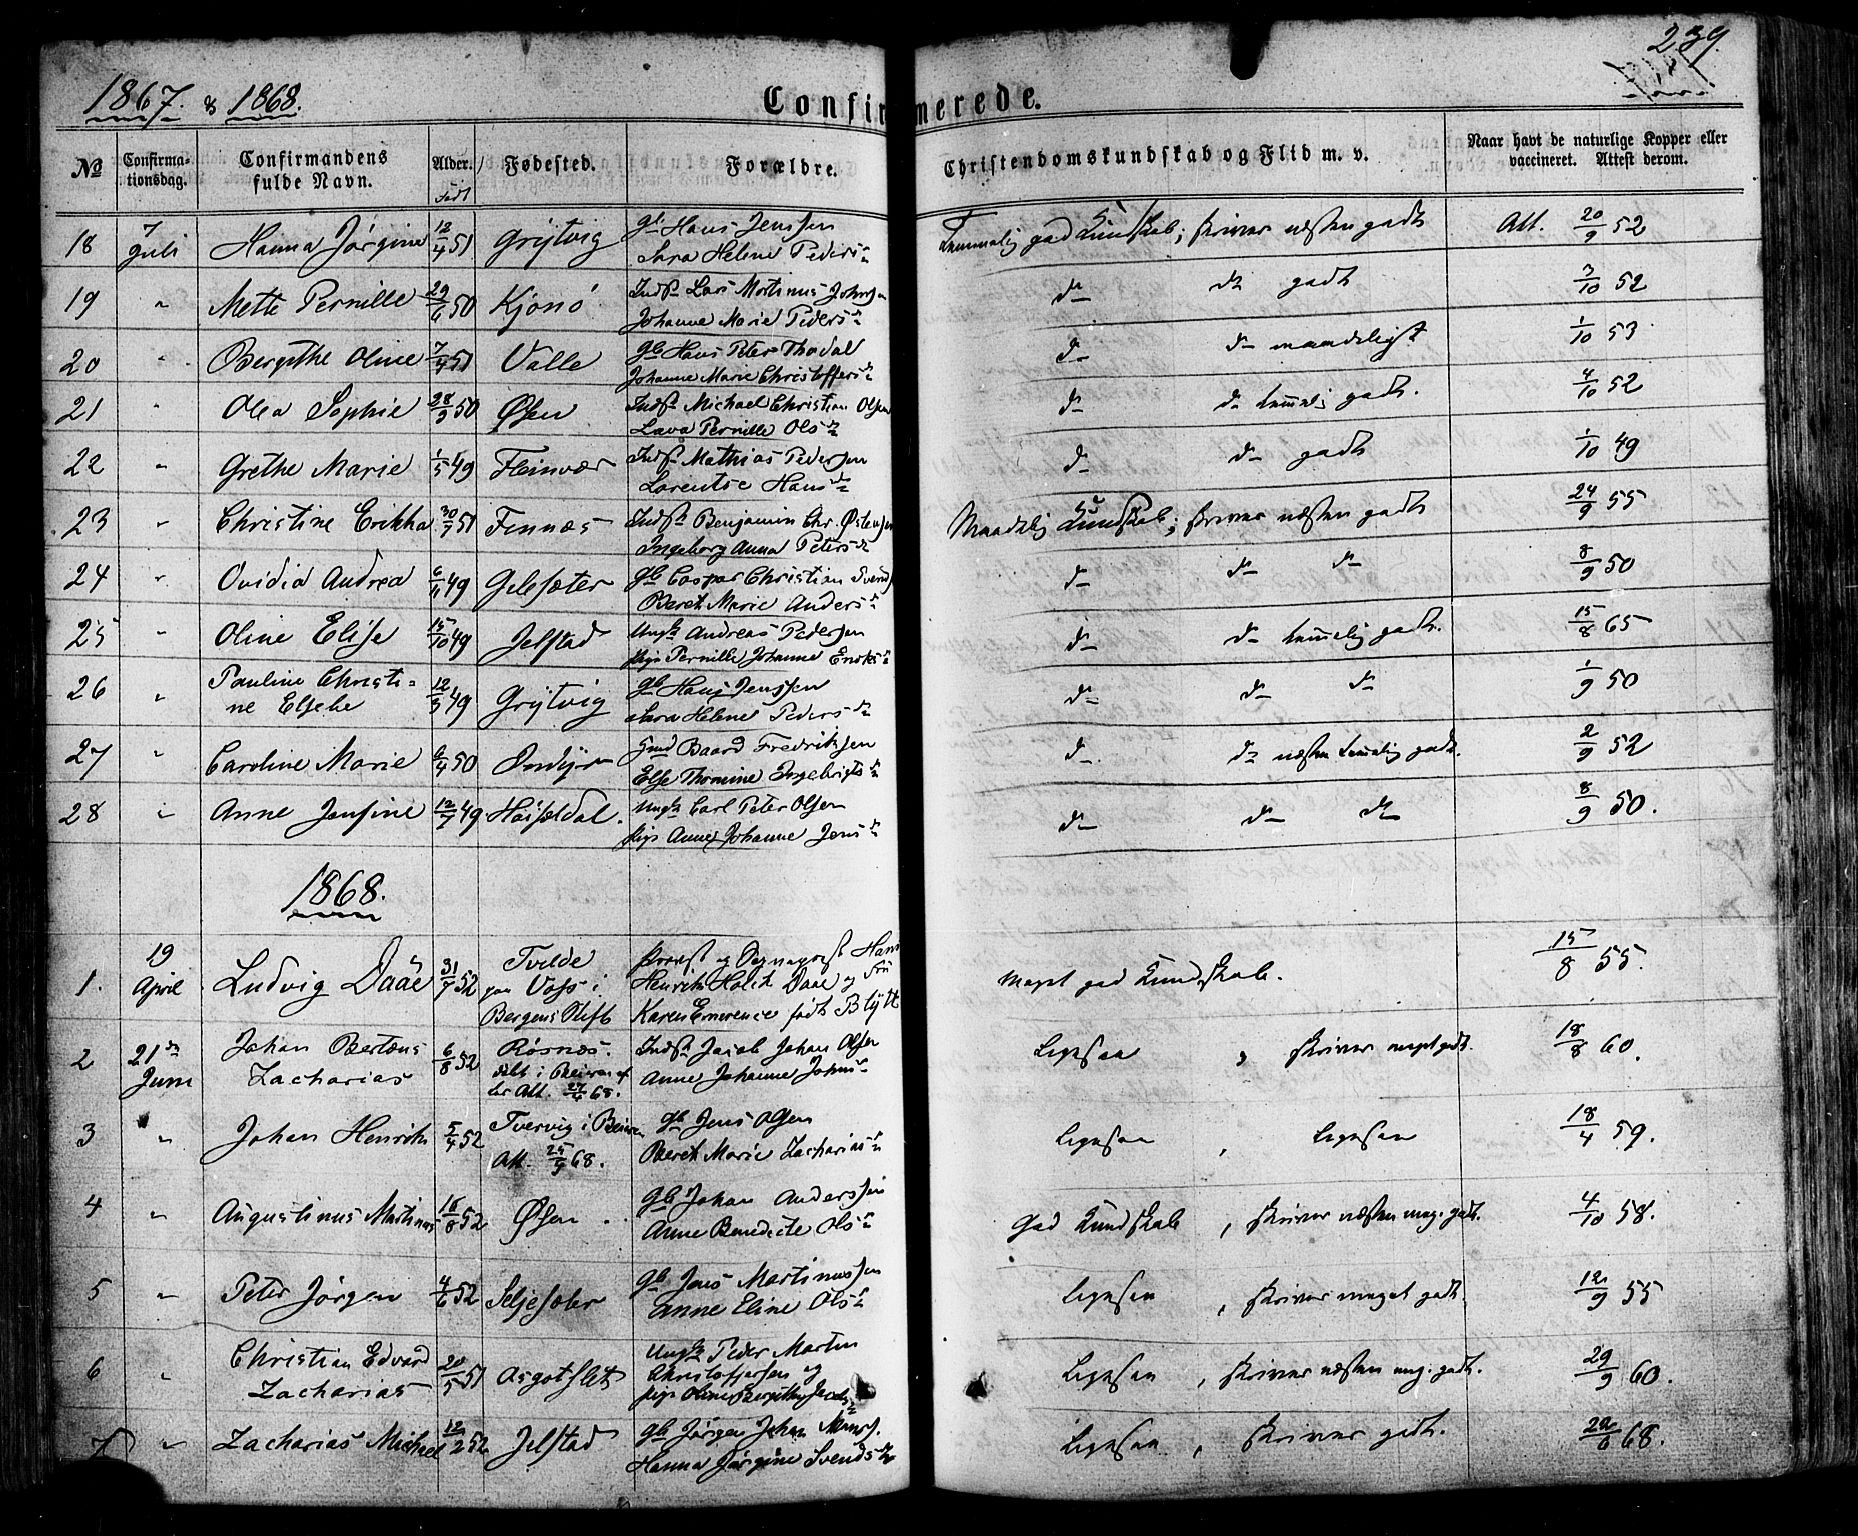 239.
1867. & 1868.
Confirmerede.
No
Confirma-
tionsdag.
Confirmandens
fulde Navn.
Alder.
Født
Fødested.
Forældre.
Christendomskundskab og Flid m. v.
Naar havt de naturlige Kopper eller
vaccineret. Attest derom.
18 7 Juli Hanna Jørgine 12/4 51 Grytvig Gb Hans Jenssen
Sara Helene Peders
Temmelig god Kundskab; skriver næsten godt Att. 20/9 52
19 " Mette Pernille 29/6 50 Kjønø Inds Lars Martinus Johnsen
Johanne Marie Peders
do do godt 3/10 52
20 " Bergithe Oline 7/4 51 Valle Gb Hans Peter Thodal
Johanne Marie Christoffers
do do maadeligt 1/10 53
21 " Olea Sophie 28/9 50 Øsen Inds Michael Christian Olsen
Lava Pernille Ols
do do temmelig godt. 4/10 52
22 " Grethe Marie 1/5 49 Fleinvær Inds Mathias Pedersen
Lorentse Hans
do do godt 1/10 49
23 " Christine Erikka 30/7 51 Finnæs Inds Benjamin Chr. Østensen
Ingeborg Anna Peters
Maadelig Kundskab; skriver næsten godt 24/9 55
24 " Ovidia Andrea 6/11 49 Gilesæter Gb Caspar Christian
Beret Marie Anders
do do do 8/9 50
25 " Oline Elise 15/10 49 Jelstad Ungk Andreas Pedersen
Pige Pernille Johanne
do do temmelig godt. 15/8 65
26 " Pauline Christi=
ne Elsebe 12/3 49 Grytvig Gb Hans Jenssen
Sara Helene Peders
do do do 1/9 50
27 " Caroline Marie 6/4 50 Gmd Baard Fredriksen
Else Thomine Ingebrigts
do do næsten temmelig godt. 2/9 52
28 " Anne Jensine 12/7 49 Ungk Carl Peter Olsen
Pige Anne Johanne Jens
do do do 8/9 50.
1868.
1. 19 April Ludvig Daae 31/7 52 Tvilde
paa Voss i
Bergens Stift
Provst og Sognepræst Hans
Henrik Holck Daae og Fru
Karen Emerence født Blytt
Meget god Kundskab. 15/8 55.
2 21de Juni Johan Bertæus
Zacharias 6/8 52 Røsnæs.
døbt i Beiren ef
ter Att. 27/4 68.
Inds Jacob Johan Olsen
Anne Johanne Johns
Ligesaa , skriver meget godt. 18/8 60.
3 " Johan Henrik 5/4 52 Tvervig i Beiren
Att. 25/9 68.
Gb Jens Olsen
Beret Marie Zacharias
Ligesaa , Ligesaa 18/4 59.
4 " Augustinus Martinus 16/8 52 Øsen. Gb Johan Anderssen
Anne Benedicte Ols
God Kundskab , skriver næsten meg. godt. 4/10 58.
5 " Peter Jørgen 4/6 52 Seljesæter Gb Jens Martinussen
Anne Eline Ols
Ligesaa , skriver meget godt. 12/9 55
6 " Christian Edvard
Zacharias 20/5 51 Asgotslet Ungk Peder Martin
Christoffersen og
Pige Oline Bergitte
Ligesaa , skriver næsten meg. godt. 29/9 60.
7 " Zacharias Michael 12/2 52 Jelstad Gb Jørgen Johan
Hanna Jørgine Svends
Ligesaa , skriver godt. 22/6 68.